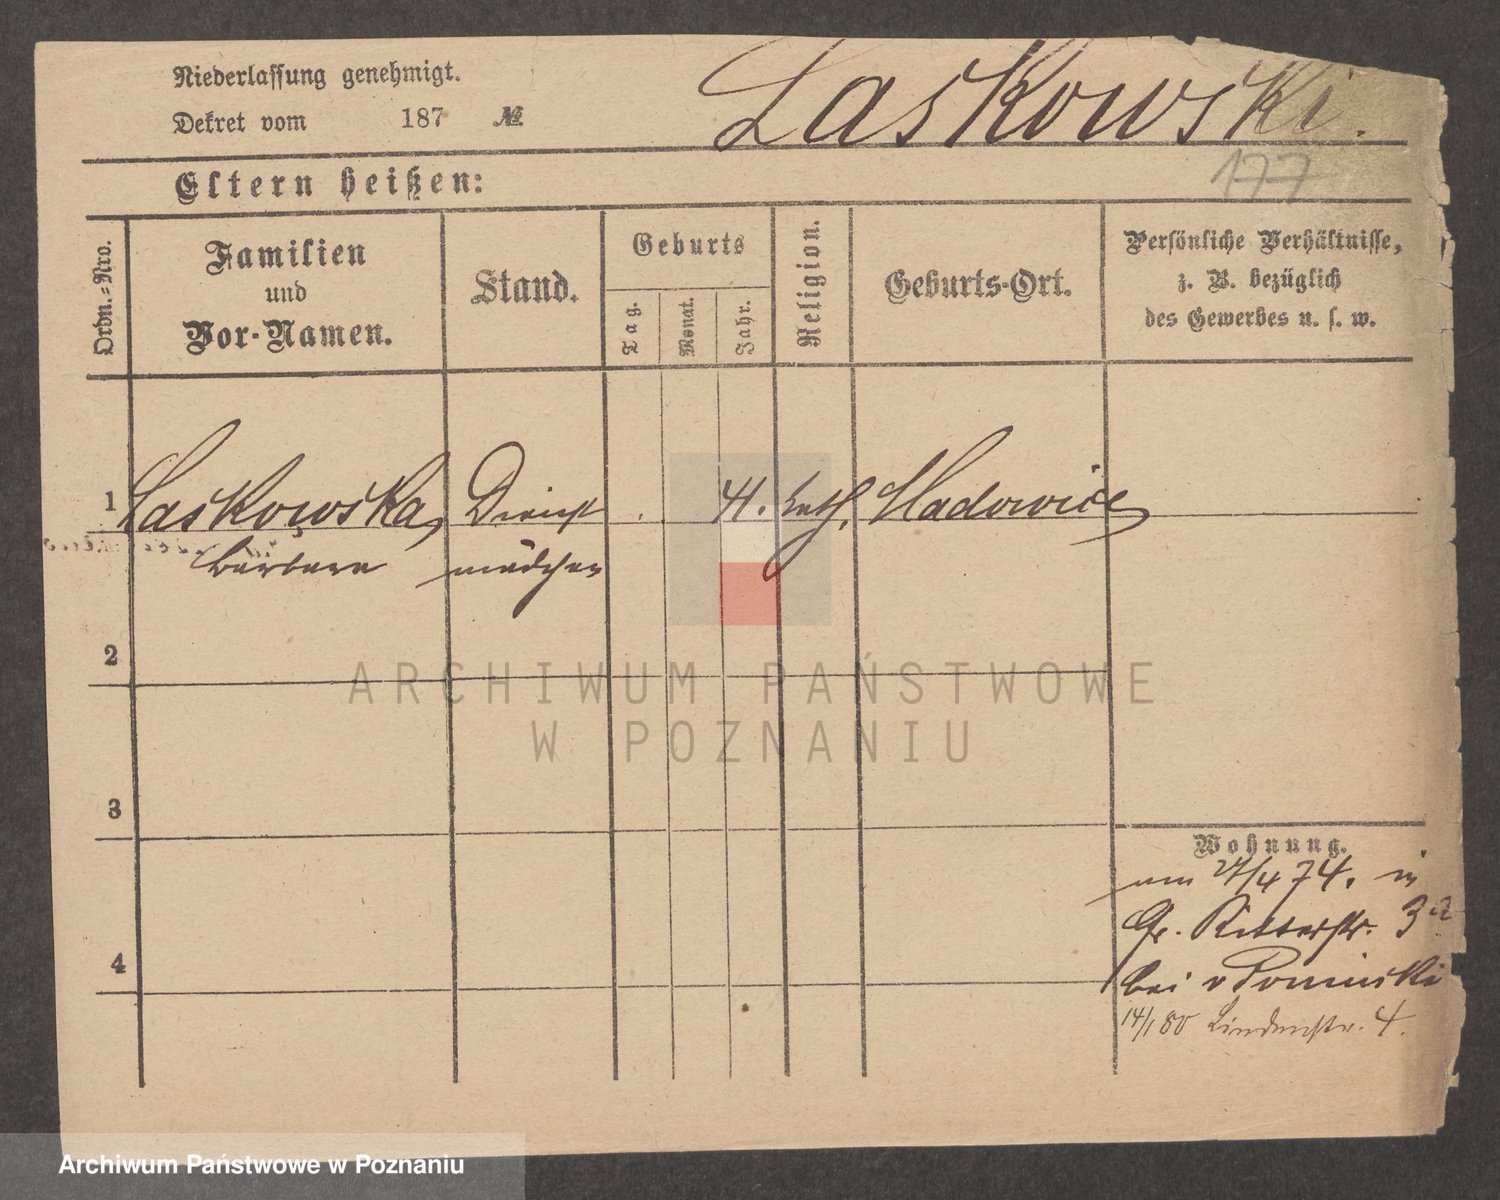 Niederlassung genehmigt.
Dekret vom 187 №
Laskowski.
177
Eltern heißen:
Ordn.-Nro.
Familien
und
Vor-Namen.
Stand.
Geburts
Tag.
Monat.
Jahr.
Religion.
Geburts-Ort.
Persönliche Verhältnisse,
z. B. bezüglich
des Gewerbes u. s. w.
1 Laskowska, Dienst kath.
Barbara mädchen
2
3
4
Wohnung.
74. in
Gr. Ritterstr. 3a
bei v Poninski
14/1 80 Lindenstr. 4.
ARCHIWUM PAŃSTWOWE
W POZNANIU
Archiwum Państwowe w Poznaniu